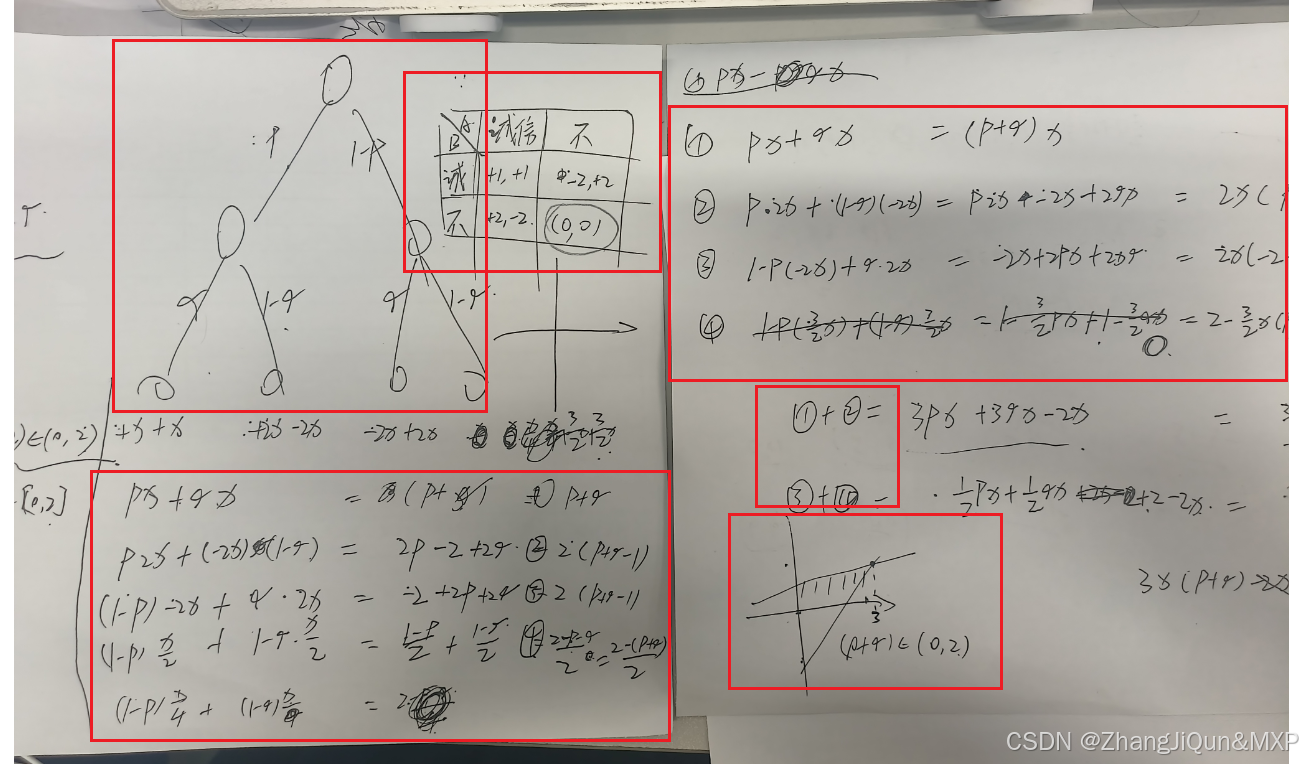 :P
1-P
q
1-q
q
1-q
A
B
诚信
不
诚
+1, +1
-2, +2
不
+2, -2
(0, 0)
∈(0, 2)
+x + x
+2x - 2x
-2x + 2x
[0, 2]
px + qx = x(p+q) ① p+q
p2x + (-2x)(1-q) = 2p-2+2q ② 2(p+q-1)
(1-p)-2x + q·2x = -2+2p+2q ③ 2(p+q-1)
(1-p) x/2 + 1-q·x/2 = 1-p/2 + 1-q/2 ④ 2-p-q/2 = 2-(p+q)/2
(1-p) x/4 + (1-q) x/4 = 2
① px + qx = (p+q)x
② p·2x + (1-q)(-2x) = p2x + -2x + 2qx = 2x(
③ 1-p(-2x) + q·2x = -2x+2px+2xq = 2x(-2
④ 1-p(3/2x) + (1-q)3/2x = 1-3/2px + 1-3/2qx = 2-3/2x(
0
①+②= 3px + 3qx - 2x = 3
③+④= 1/2px + 1/2qx +2-2x =
3
(p+q)∈(0, 2)
3x(p+q)-2x
CSDN @ZhangJiQun&MXP